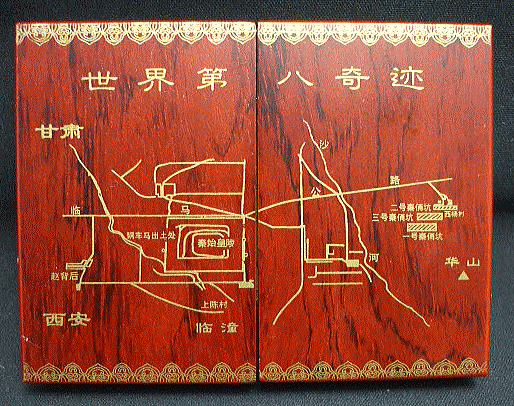 世界第八奇迹
甘肃
沙
公
路
临
马
二号秦俑坑
西杨村
三号秦俑坑
一号秦俑坑
铜车马出土处
秦始皇陵
河
华山
赵背后
上陈村
西安
临潼